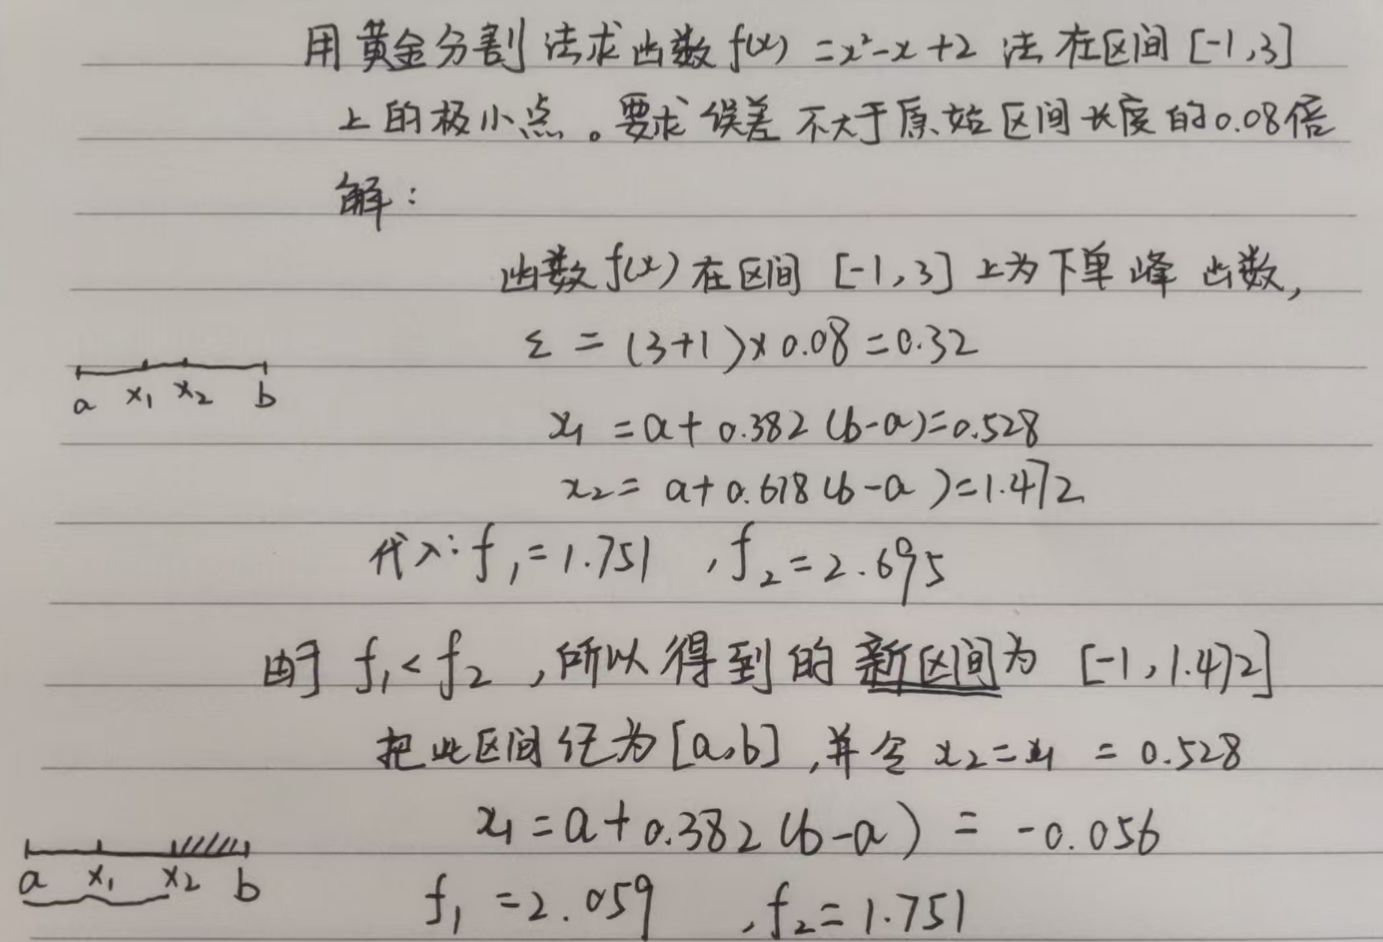 用黄金分割法求函数f(x)=x²-x+2 法在区间[-1,3]
上的极小点。要求误差不大于原始区间长度的0.08倍
解：
函数f(x)在区间[-1,3]上为下单峰函数,
ε=(3+1)×0.08=0.32
a x₁ x₂ b
x₁=a+0.382(b-a)=0.528
x₂=a+0.618(b-a)=1.472
代入:f₁=1.751 ,f₂=2.695
由于 f₁<f₂ ,所以得到的新区间为 [-1,1.472]
把此区间任为[a,b],并令 x₂=x₁=0.528
x₁=a+0.382(b-a)=-0.056
a x₁ x₂ b
f₁=2.059 ,f₂=1.751